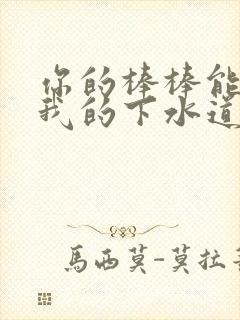 你的棒棒能
我的下水道
馬西莫-莫拉